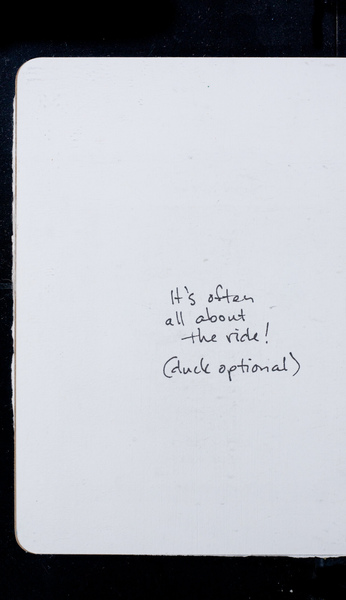 It's often
all about
the ride!
(duck optional)